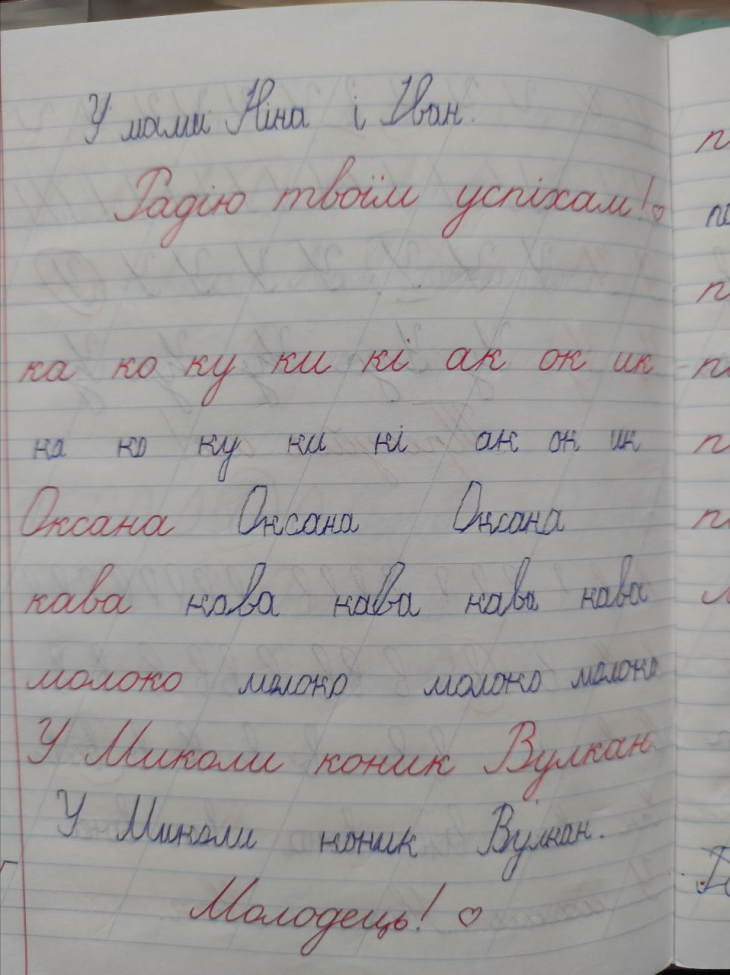 У мами Ніна і Іван.
Радію твоїм успіхам!♡
ка ко ку ки кі ак ок ик
ка ко ку ки кі ак ок ик
Оксана Оксана Оксана
кава кава кава кава кава
молоко молоко молоко молоко
У Миколи коник Вулкан.
У Миколи коник Вулкан.
Молодець! ♡